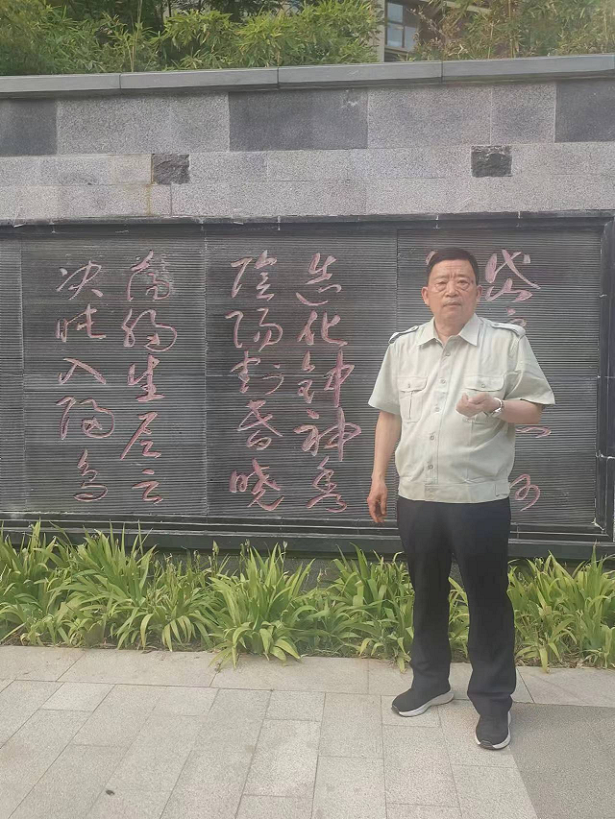 岱 何
造化钟神秀
陰陽割昏晓
荡胸生层云
决眦入归鸟